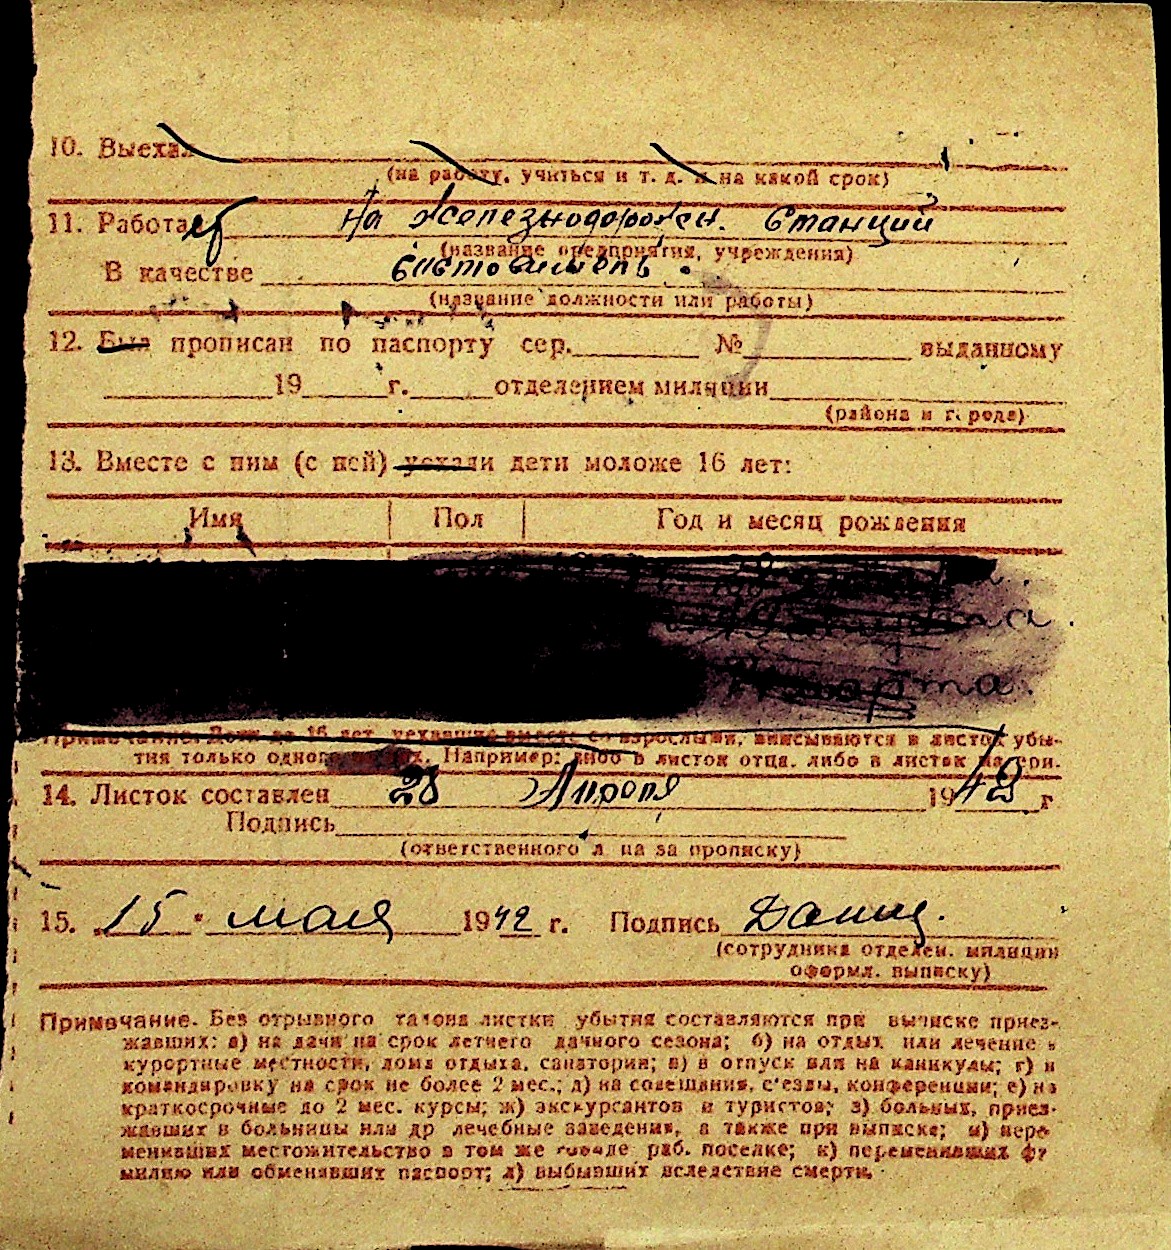 10. Выехал
(на работу, учиться и т. д. и на какой срок)
11. Работает На железнодорожн. станции
(название предприятия, учреждения)
В качестве
(название должности или работы)
12. Был прописан по паспорту сер. № выданному
19 г. отделением милиции
(района и города)
13. Вместе с ним (с ней) уехали дети моложе 16 лет:
Имя Пол Год и месяц рождения
марта.
Примечание. Дети до 16 лет, уехавшие вместе со взрослыми, вписываются в листок убы-
тия только одного их. Например: либо в листок отца, либо в листок матери.
14. Листок составлен 28 Апреля 1942 г
Подпись
(ответственного лица за прописку)
15. 15 мая 1942 г. Подпись
(сотрудника отделен. милиции
оформл. выписку)
Примечание. Без отрывного талона листки убытия составляются при выписке приез-
жавших: а) на дачи на срок летнего дачного сезона; б) на отдых или лечение в
курортные местности, дома отдыха, санатории; в) в отпуск или на каникулы; г) в
командировку на срок не более 2 мес.; д) на совещания, с'езды, конференции; е) на
краткосрочные до 2 мес. курсы; ж) экскурсантов и туристов; з) больных, приез-
жавших в больницы или др лечебные заведения, а также при выписке; и) пере
менивших местожительство в том же городе раб. поселке; к) переменивших фа
милию или обменявших паспорт; л) выбывших вследствие смерти.